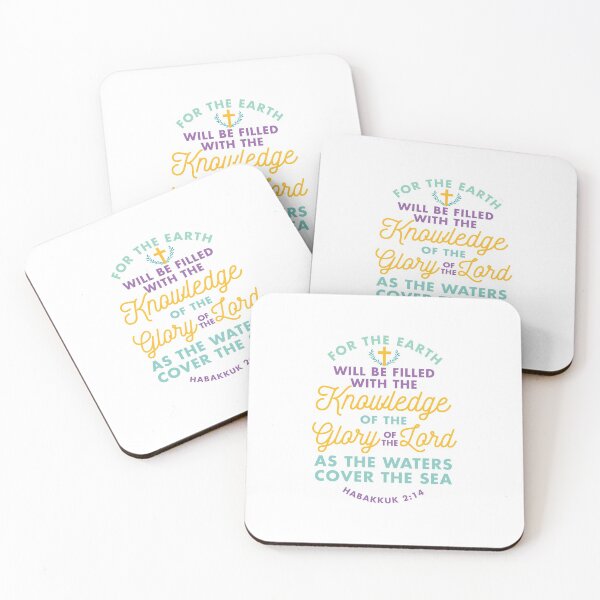 FOR THE EARTH
WILL BE FILLED
WITH THE
Knowledge
Lord
FOR THE EARTH
WILL BE FILLED
WITH THE
Knowledge
OF THE
Glory OF THE Lord
AS THE WATERS
COVER THE SEA
FOR THE EARTH
WILL BE FILLED
WITH THE
Knowledge
OF THE
Glory OF THE Lord
AS THE WATE
COVER THE
HABAKKUK 2
FOR THE EARTH
WILL BE FILLED
WITH THE
Knowledge
OF THE
Glory OF THE Lord
AS THE WATERS
COVER THE SEA
HABAKKUK 2:14